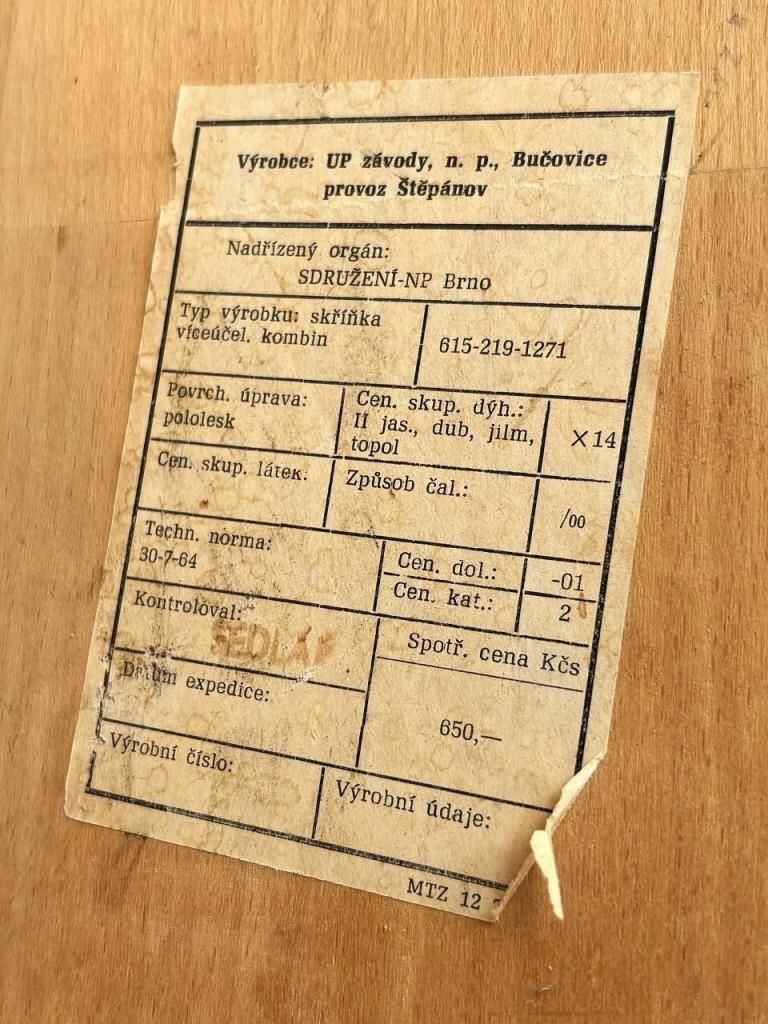 Výrobce: UP závody, n. p., Bučovice
provoz Štěpánov
Nadřízený orgán:
SDRUŽENÍ-NP Brno
Typ výrobku: skříňka
víceúčel. kombin
615-219-1271
Povrch. úprava:
pololesk
Cen. skup. dýh.:
II jas., dub, jilm,
topol
X14
Cen. skup. látek:
Způsob čal.:
/00
Techn. norma:
30-7-64
Cen. dol.:
-01
Cen. kat.:
2
Kontroloval:
SEDLÁŘ
Spotř. cena Kčs
650,—
Datum expedice:
Výrobní číslo:
Výrobní údaje:
MTZ 12